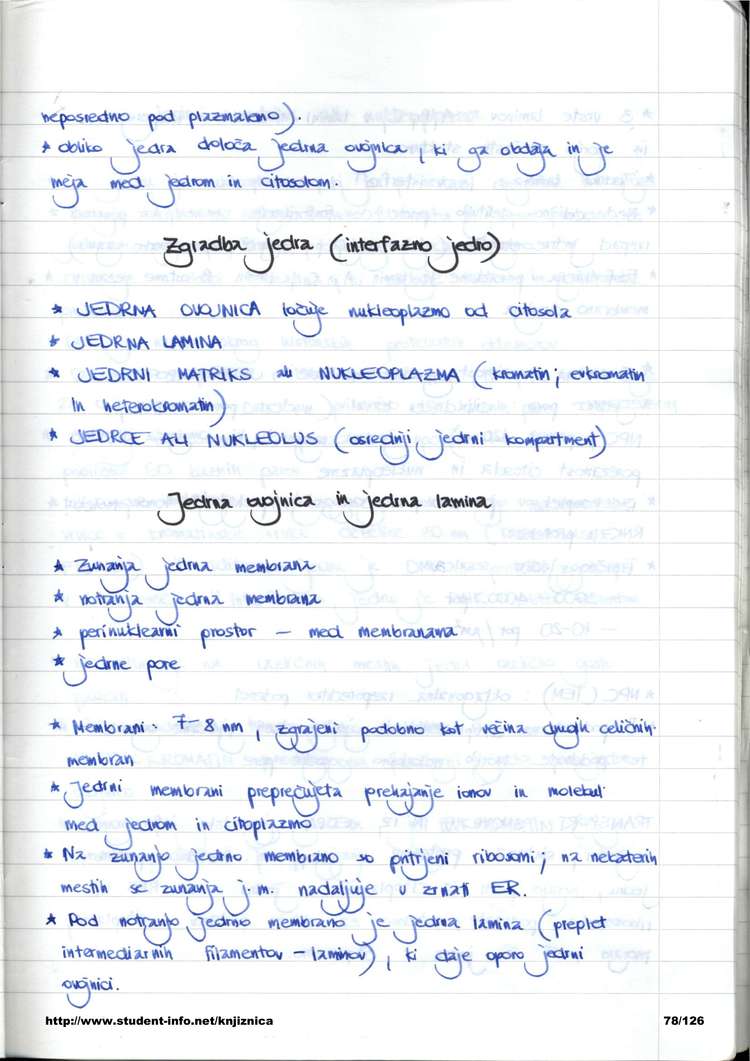 neposredno pod plazmalemo).
* obliko jedra določa jedrna ovojnica, ki ga obdaja in je
meja med jedrom in citosolom.
Zgradba jedra (interfazno jedro)
* JEDRNA OVOJNICA ločuje nukleoplazmo od citosola
* JEDRNA LAMINA
* JEDRNI MATRIKS ali NUKLEOPLAZMA (kromatin; evkromatin
in heterokromatin)
* JEDRCE ALI NUKLEOLUS (osrednji jedrni kompartment)
Jedrna ovojnica in jedrna lamina
* Zunanja jedrna membrana
* notranja jedrna membrana
* perinuklearni prostor – med membranama
* jedrne pore
* Membrani: 7-8 nm, zgrajeni podobno kot večina drugih celičnih
membran
* Jedrni membrani preprečujeta prehajanje ionov in molekul
med jedrom in citoplazmo
* Na zunanjo jedrno membrano so pritrjeni ribosomi; na nekaterih
mestih se zunanja j.m. nadaljuje v zrnati ER.
* Pod notranjo jedrno membrano je jedrna lamina (preplet
intermediarnih filamentov – laminov), ki daje oporo jedrni
ovojnici.
http://www.student-info.net/knjiznica 78/126